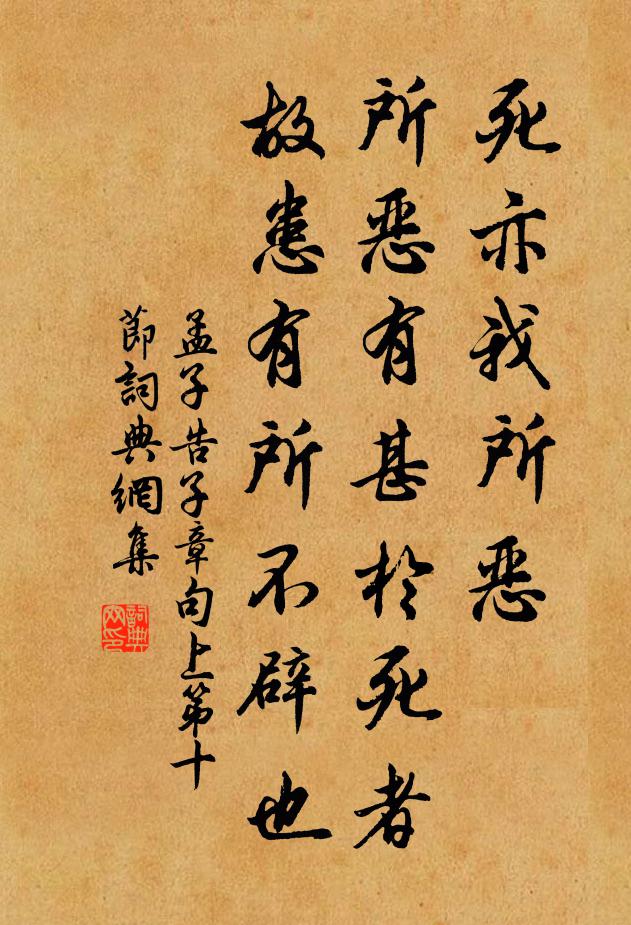 死亦我所恶
所恶有甚於死者
故患有所不辟也
孟子告子章句上第十
節詞典網集
詞典網印